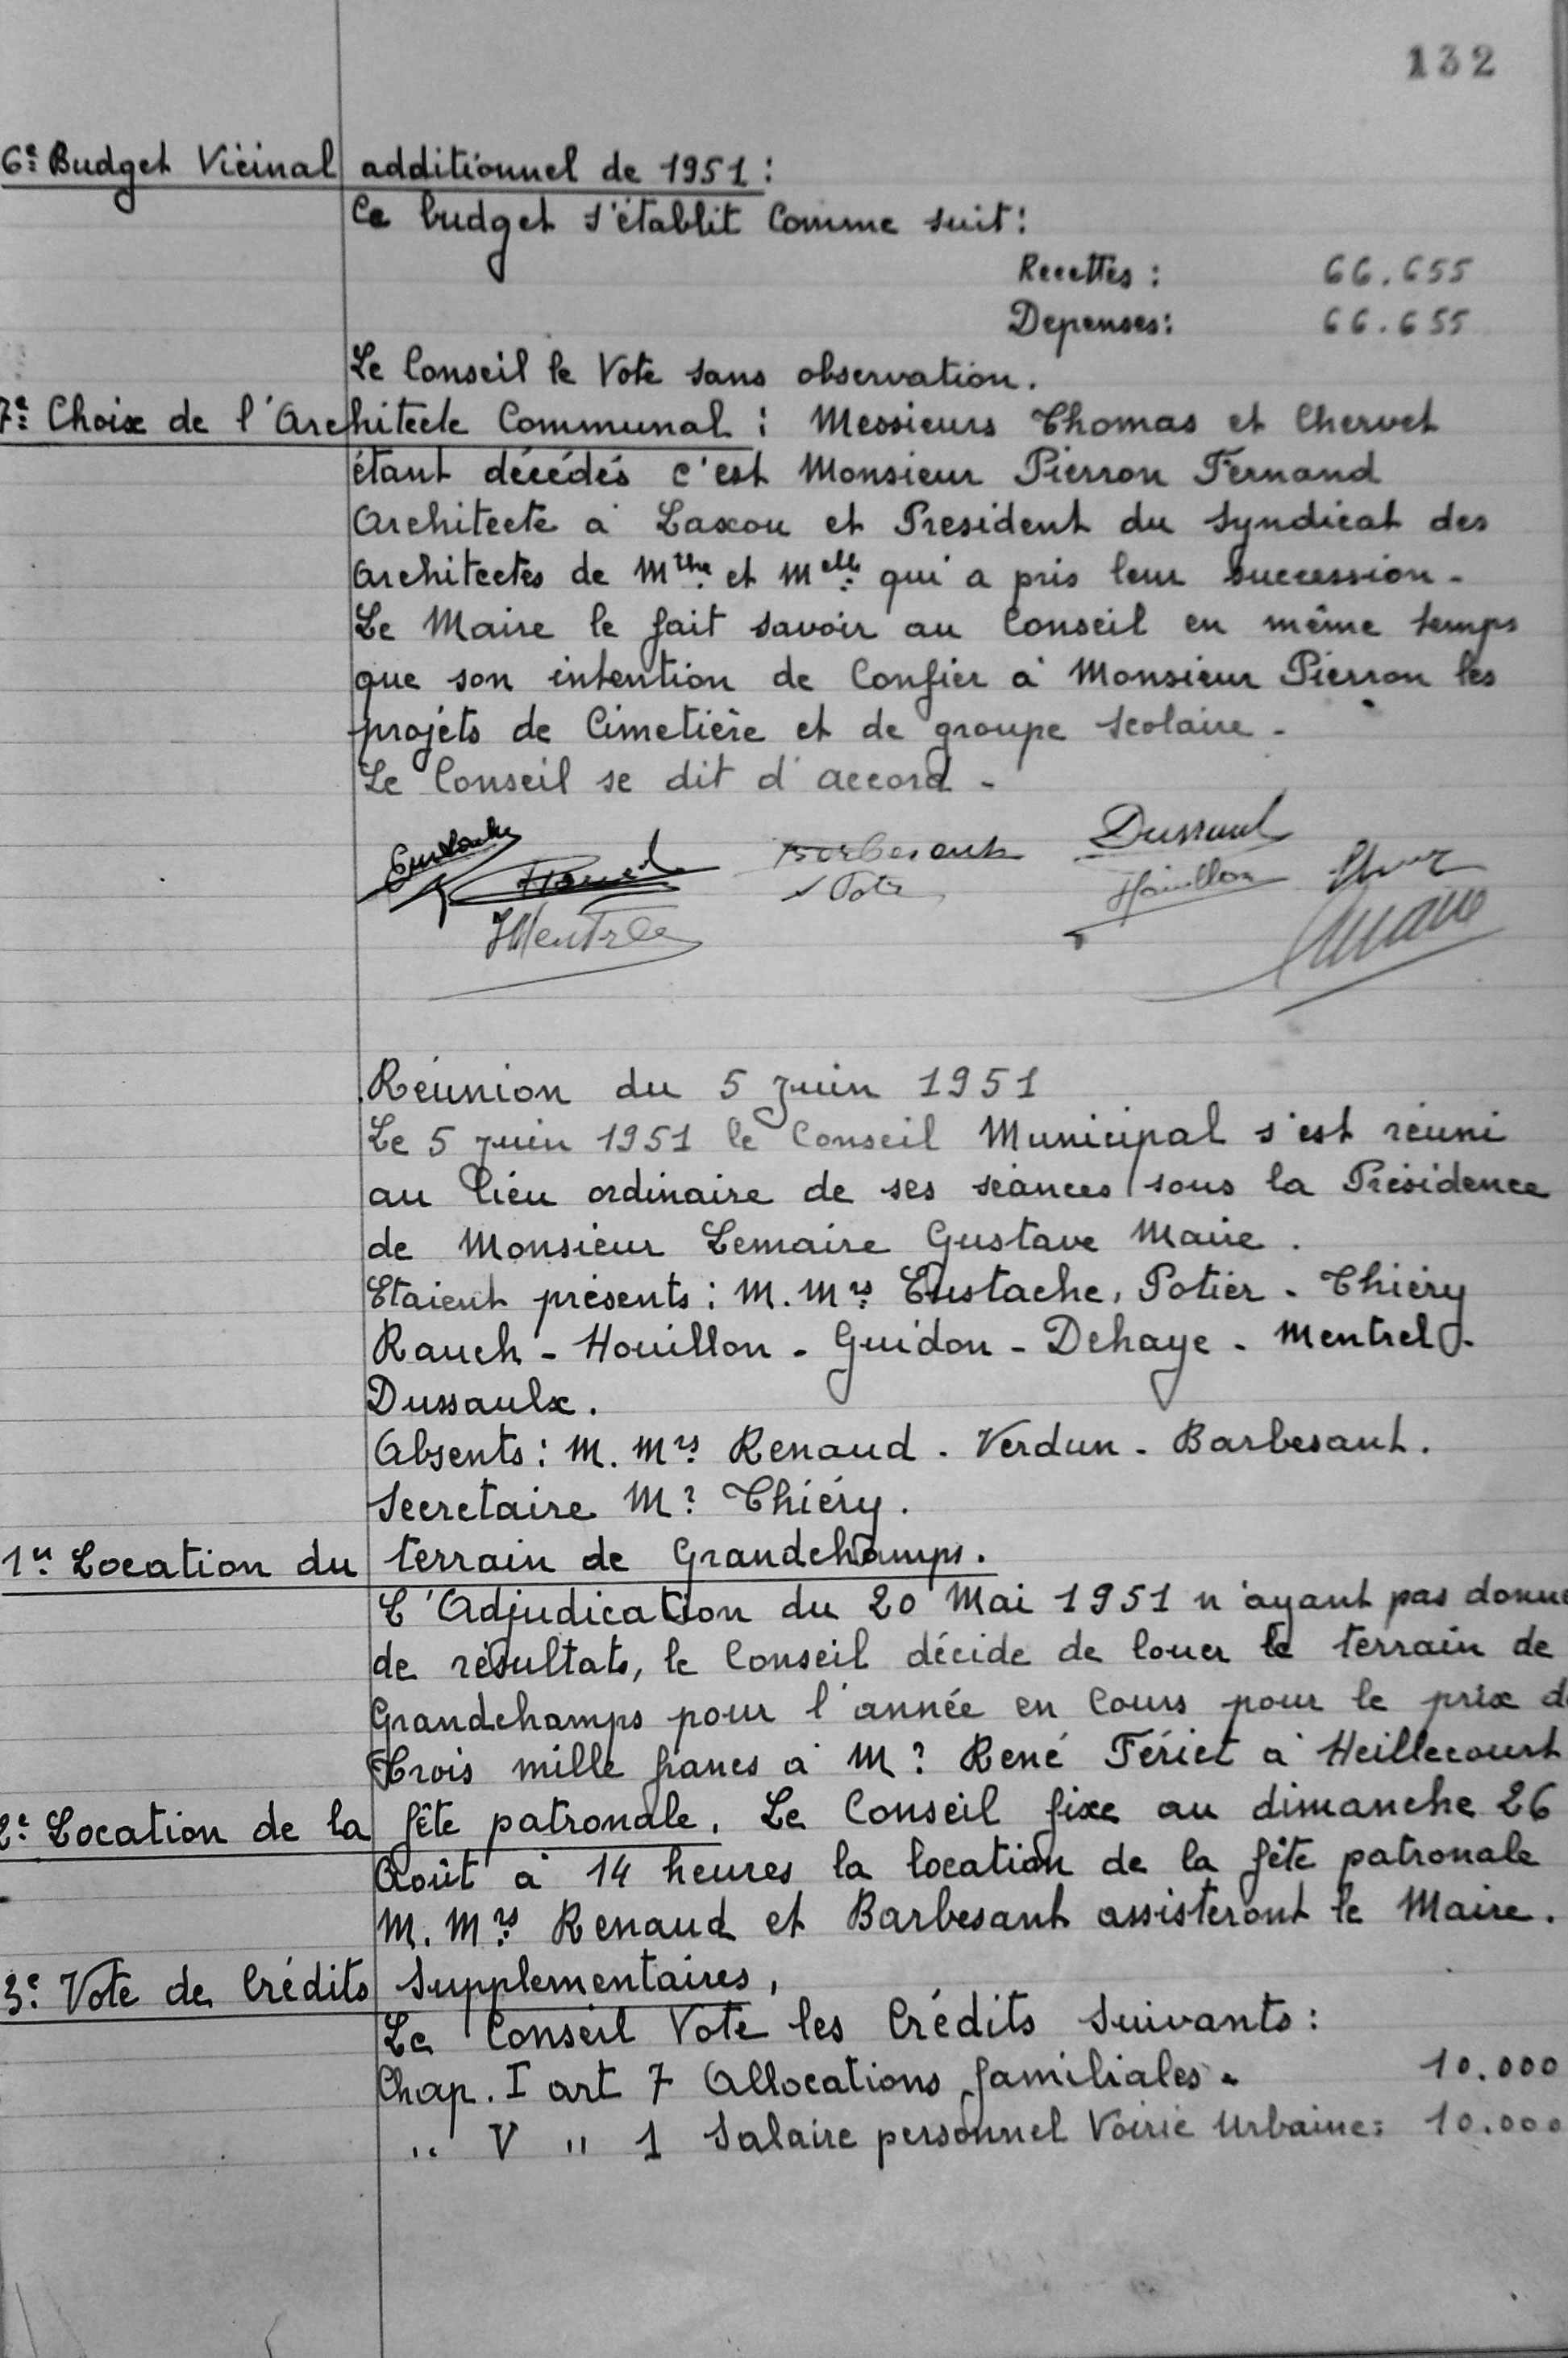 132
6e Budget Vicinal additionnel de 1951 :
Ce budget s'établit Comme suit :
Recettes : 66.655
Depenses : 66.655
Le Conseil le Vote sans observation.
7e Choix de l'Architecte Communal : Messieurs Thomas et Chervet
étant décédés c'est Monsieur Pierron Fernand
Architecte à Laxou et President du Syndicat des
Architectes de Mthe et Melle qui a pris leur succession -
Le Maire le fait savoir au Conseil en même temps
que son intention de Confier à Monsieur Pierron les
projets de Cimetière et de groupe Scolaire -
Le Conseil se dit d'accord -
Eustache Barbesant Dussaul
Houillon
JMentrel
Réunion du 5 Juin 1951
Le 5 Juin 1951 le Conseil Municipal s'est réuni
au lieu ordinaire de ses séances sous la Présidence
de Monsieur Lemaire Gustave Maire.
Etaient présents : M. Mrs Eustache, Potier - Thiéry
Rauch - Houillon - Guidon - Dehaye - Mentrel -
Dussaulx.
Absents : M. Mrs Renaud - Verdun - Barbesant.
Secretaire Mr Thiéry.
1er Location du terrain de Grandchamps.
L'Adjudication du 20 Mai 1951 n'ayant pas donné
de résultats, le Conseil décide de louer le terrain de
Grandchamps pour l'année en Cours pour le prix d
Trois mille francs à Mr René Fériet à Heillecourt
2e Location de la fête patronale. Le Conseil fixe au dimanche 26
Août à 14 heures la location de la fête patronale
M. Mrs Renaud et Barbesant assisteront le Maire.
3e Vote de Crédits Supplementaires,
Le Conseil Vote les Crédits Suivants :
Chap. I art 7 Allocations familiales - 10.000
" V " 1 Salaire personnel Voirie Urbaine : 10.000